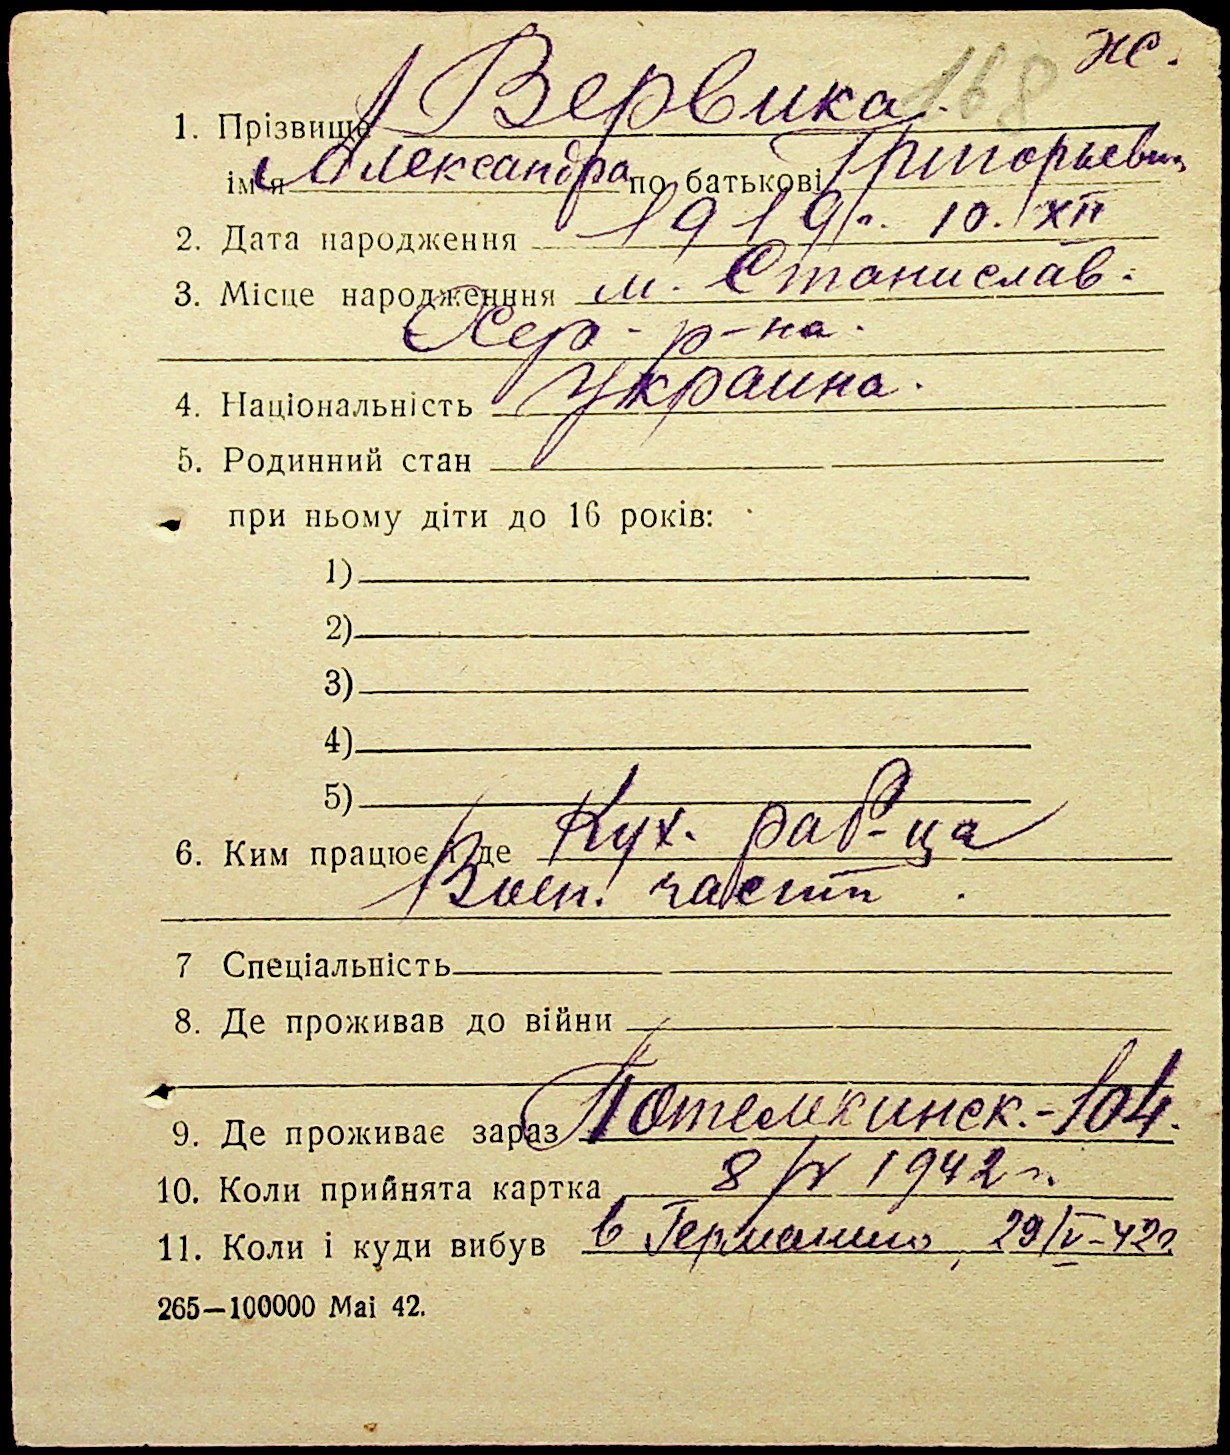 ж.
168
1. Прізвище Вервика.
ім'я Александра по батькові Григорьевн
2. Дата народження 1919 г. 10. XII
3. Місце народженння м. Станислав.
Хер. р-на.
4. Національність Украина.
5. Родинний стан
при ньому діти до 16 років:
1)
2)
3)
4)
5)
6. Ким працює і де Кух. раб-ца
Воен. части.
7 Спеціальність
8. Де проживав до війни
9. Де проживає зараз Потемкинск.-104.
10. Коли прийнята картка 8/V 1942 г.
11. Коли і куди вибув в Германию, 29/V-42г.
265—100000 Mai 42.